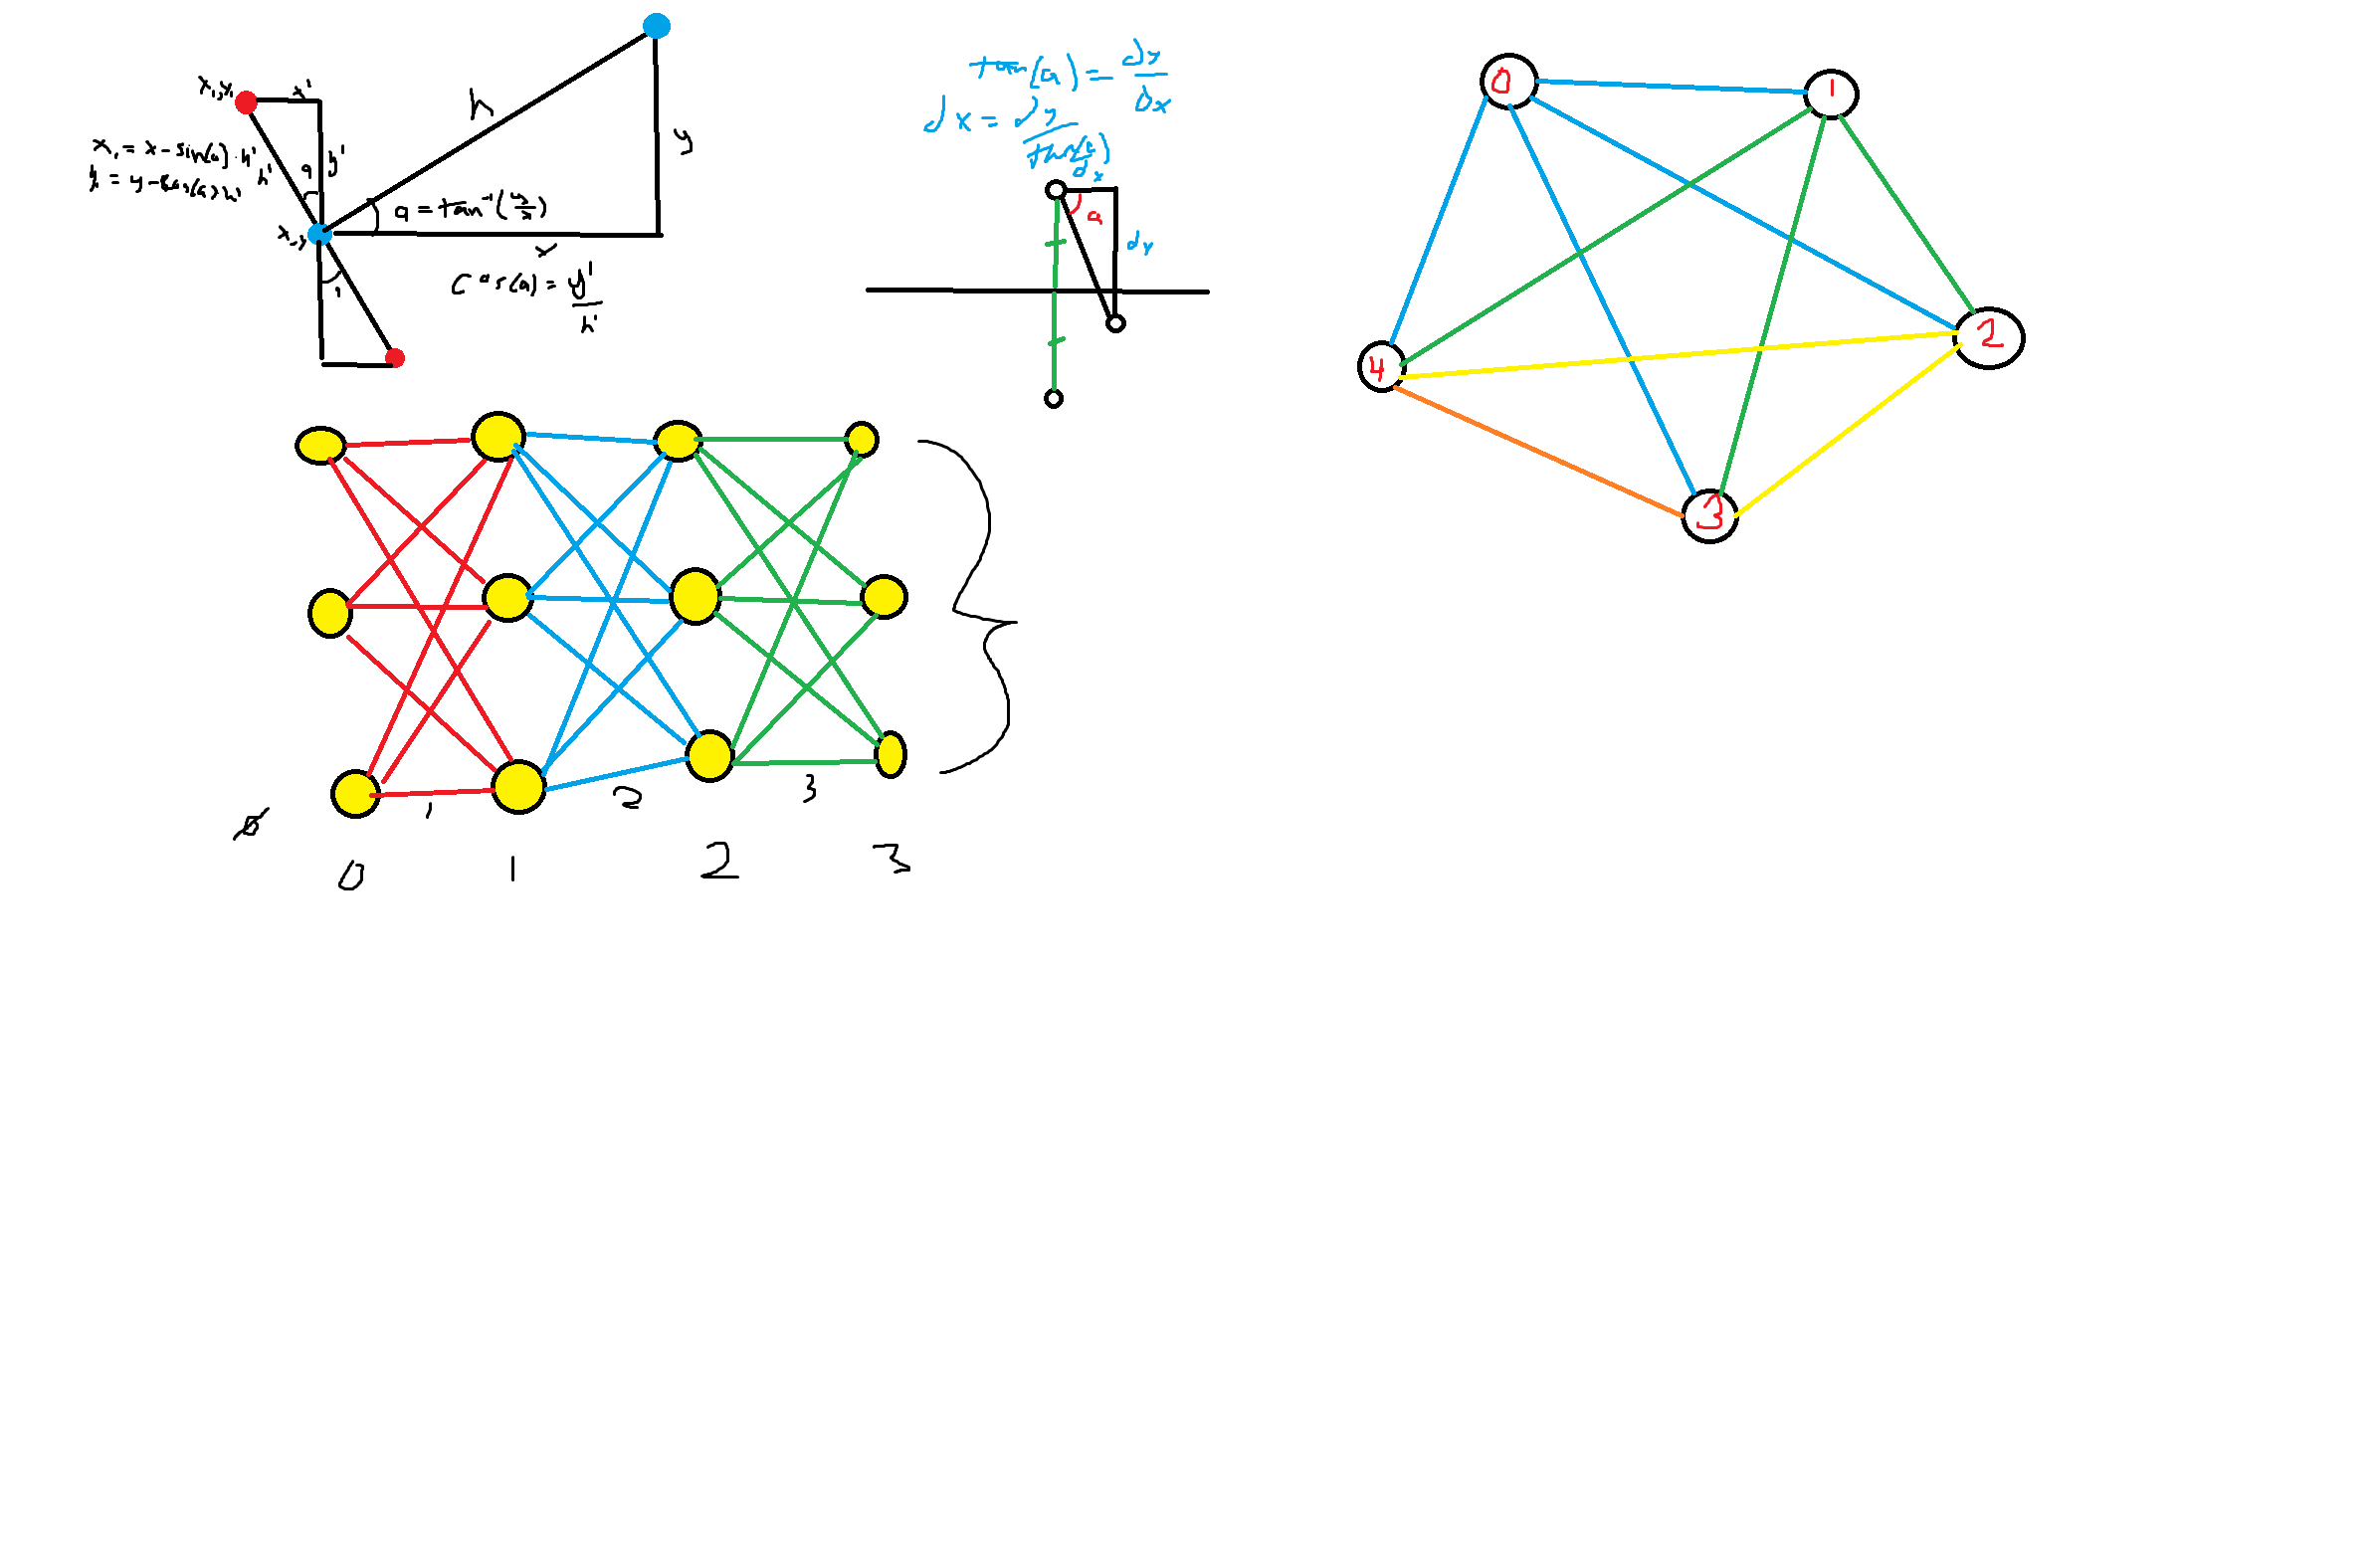 x₁,y₁
x'
x₁ = x - sin(a) · h'
y₁ = y - cos(a) · h'
h'
a
y'
h
y
x,y
a = tan⁻¹(y/x)
x
cos(a) = y'/h'
tan(a) = dy/dx
dx = dy/tan(a)
dx
a
dy
0
1
2
3
4
1
2
3
0
1
2
3